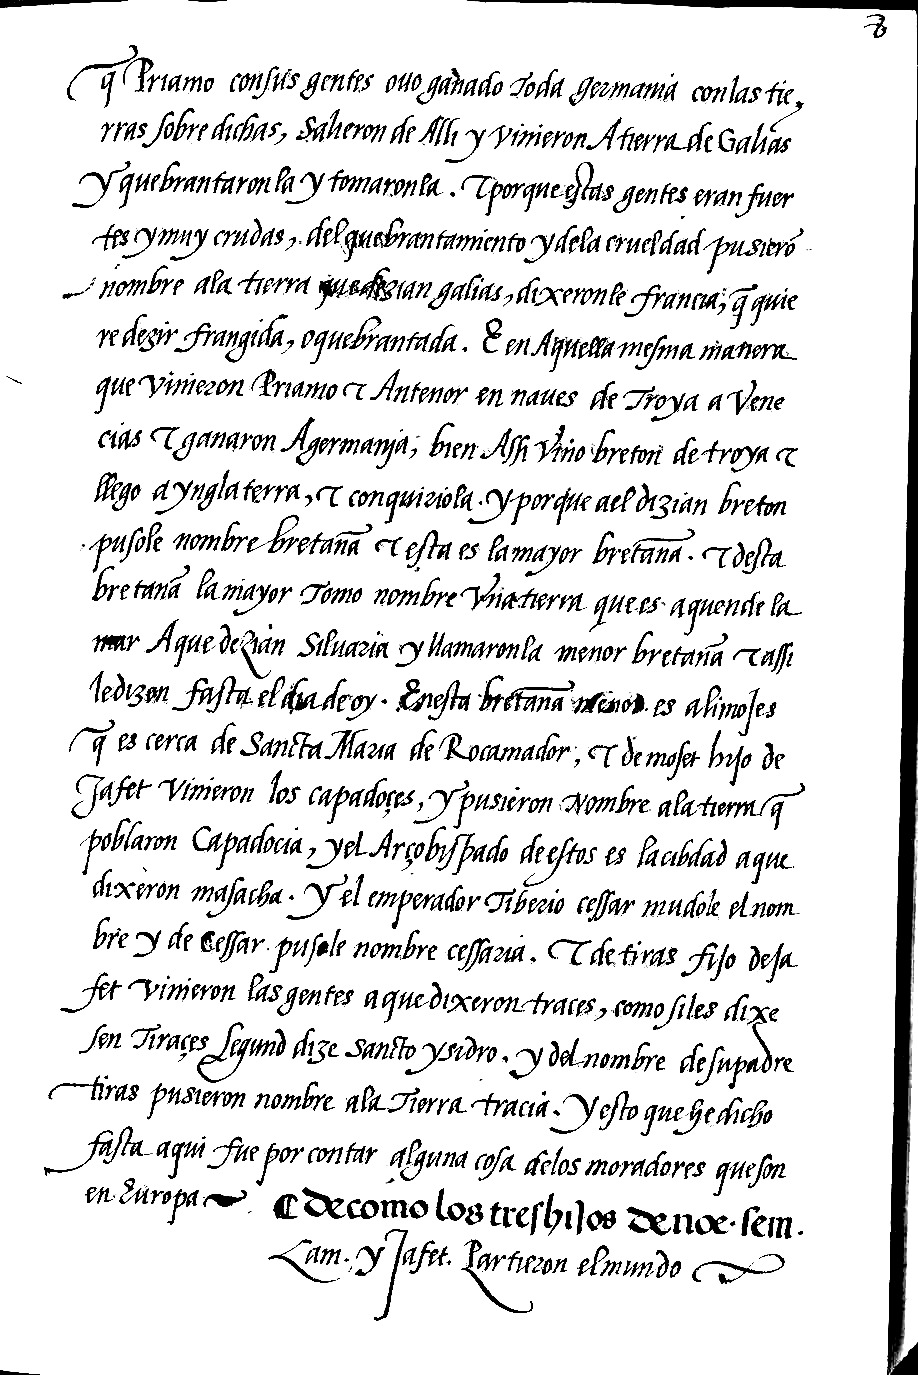 8
q̃ Priamo consus gentes ouo ganado Toda germania conlas tie,
rras sobre dichas, Salieron de Alli y vinieron A tierra de Galias
y quebrantaronla y tomaronla . τ porque estas gentes eran fuer
tes y muy crudas, del quebrantamiento y dela crueldad pusierõ
nombre ala tierra que dezian galias, dixeronle francia, q̃ quie
re dezir frangida, o quebrantada. E en Aquella mesma manera
que vinieron Priamo τ Antenor en naues de Troya a Vene
cias τ ganaron Agermania, bien Assi vino breton de troya τ
llego a ynglaterra, τ conquiriola. y porque ael dizian breton
pusole nombre bretaña τ esta es la mayor bretaña. τ desta
bretaña la mayor Tomo nombre Vna tierra que es aquende la
mar A que dezian Siluaria y llamaronla menor bretaña τ assi
le dizen fasta el dia de oy. Enesta bretaña menor es a limojes
q̃ es cerca de Sancta Maria de Rocamador, τ de moset hijo de
Jafet vinieron los capadoçes, y pusieron Nombre ala tierra q̃
poblaron Capadocia, y el Arçobispado de estos es la cibdad a que
dixeron masacha. y el emperador Tiberio cessar mudole el nom
bre y de Cessar pusole nombre cessaria. τ de tiras fijo de Ja
fet vinieron las gentes a que dixeron traces, como siles dixe
sen Tiraçes segund dize sancto ysidro. y del nombre de su padre
tiras pusieron nombre ala Tierra tracia. y esto que he dicho
fasta aqui fue por contar alguna cosa delos moradores que son
en Europa
¶ de como los tres hijos de noe. sem.
Cam. y Jafet. Partieron el mundo